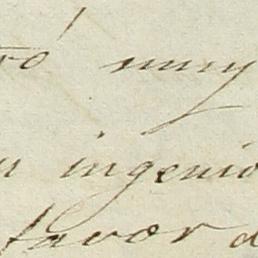 ró muy
su ingenio
favor d